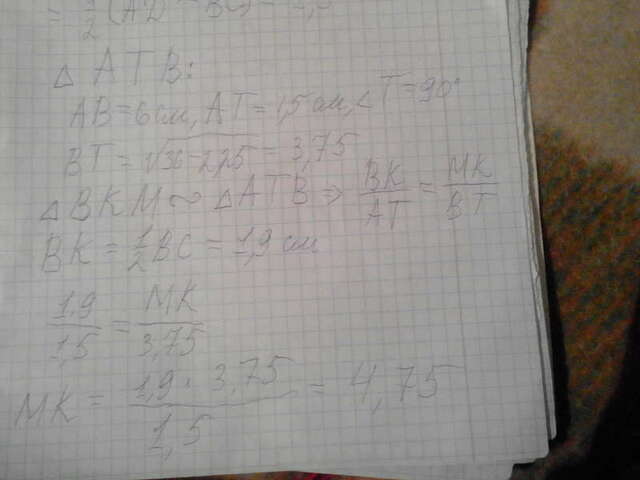 = 1/2 (AD - BC) = 1,5
△ ATB:
AB = 6 см, AT = 1,5 см, ∠T = 90°
BT = √36 - 2,25 = 3,75
△ BKM ~ △ ATB ⇒ BK/AT = MK/BT
BK = 1/2 BC = 1,9 см
1,9/1,5 = MK/3,75
MK = 1,9 · 3,75/1,5 = 4,75